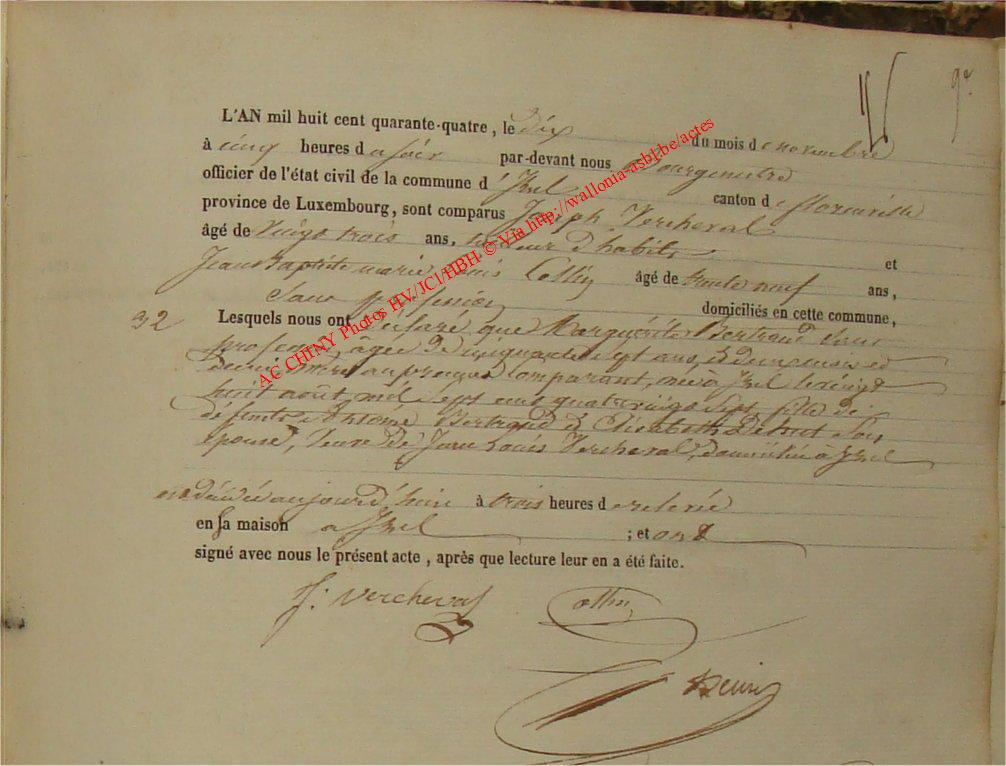 9e
L'AN mil huit cent quarante-quatre, le dix du mois de novembre
à cinq heures du soir par-devant nous Bourgmestre
officier de l'état civil de la commune d'Izel canton de florenville
province de Luxembourg, sont comparus Joseph Vercheval
âgé de vingt trois ans, tailleur d'habits et
Jean Baptiste marie Louis Collin âgé de trente neuf ans,
Sans profession domiciliés en cette commune,
32 Lesquels nous ont déclaré que Marguérite Bertrand sans
profession, âgée de cinquante sept ans,
mère au premier comparant, née à Izel le vingt
huit août, mil sept cent quatre vingt sept, fille de
défunts Bertrand et Elisabeth son
épouse, veuve de Jean Louis Vercheval, domiciliée à Izel
est décédée aujourd'hui à trois heures de relevée
en sa maison à Izel ; et ont
signé avec nous le présent acte, après que lecture leur en a été faite.
J: Vercheval Collin
AC CHINY Photos HV/JCl/HBH © Via http://wallonia-asbl.be/actes